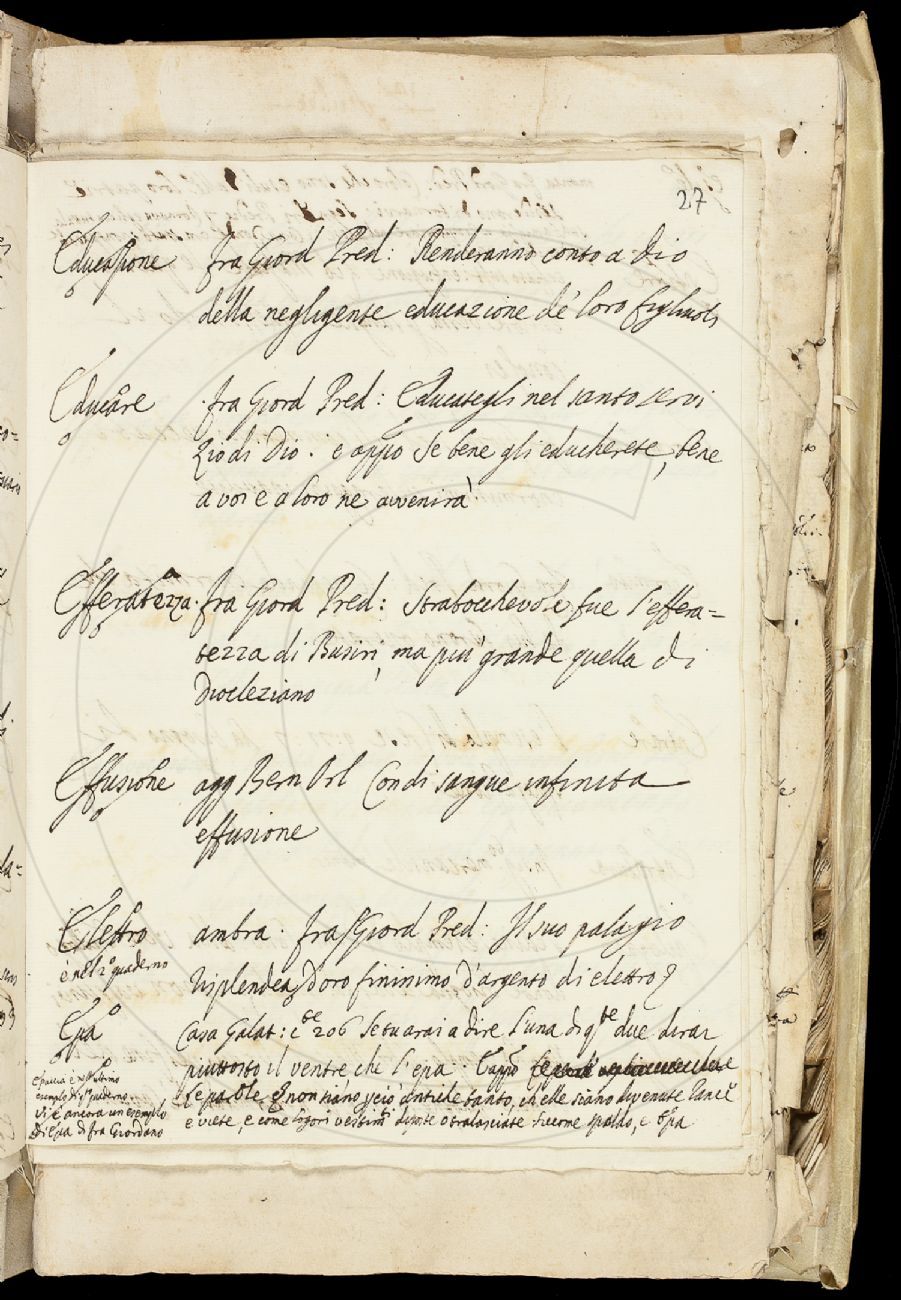 27
Educazione fra Giord Pred: Renderanno conto a dio
della negligente educazione de' loro figliuoli
Educare fra Giord Pred: Educategli nel santo servi
zio di Dio. e app.o Se bene gli educherete, bene
a voi e a loro ne avvenirà
Efferatezza. fra Giord Pred: Strabocchevole fue l'effera=
tezza di Busiri, ma più grande quella di
Diocleziano
Effusione agg Bern Orl Con di sangue infinita
effusione
Elettro ambra. fra Giord Pred: Il suo palagio
è nel 2° quaderno
risplendea d'oro finissimo d'argento di elettro
Epa Casa Galat: c 206 Se tu arai a dire l'una di q.te due dirai
piuttosto il ventre che l'epa. E app.o
le parole non siano però antiche tanto, ch'elle siano divenute rance
e viete, e come logori vestim.ti diposte o tralasciate siccome spaldo, e Epa
Epaccia è nell'ultimo
esempio di q.o quaderno
Vi è ancora un esempio
di Epa di fra Giordano